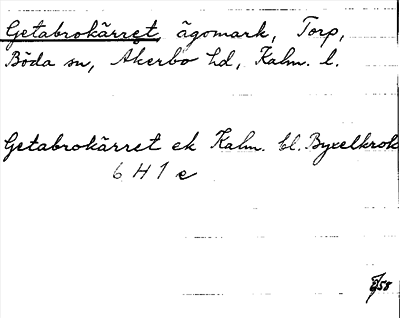 Getabrokärret, ägomark, Torp,
Böda sn, Åkerbo hd, Kalm. l.
Getabrokärret ek Kalm. bl. Byxelkrok
6 H 1 e